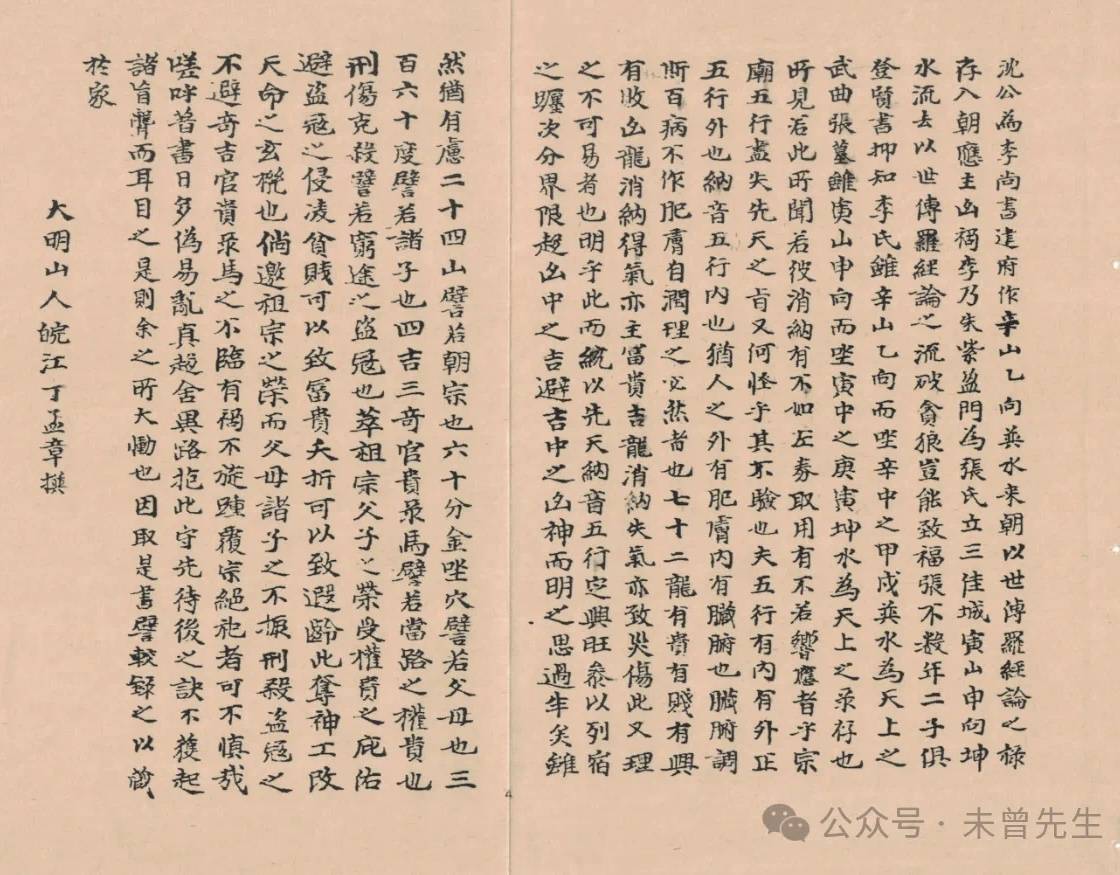 沈公為李尚書建府作辛山乙向巽水來朝以世溥羅經論之祿
存入朝應主凶禍李乃朱紫盈門為張氏立三佳城寅山申向坤
水流去以世傳羅經論之流破貪狼豈能致福張不数年二子俱
登賢書抑知李氏雖辛山乙向而坐辛中之甲戌巽水為天上之
武曲張墓雖寅山申向而坐寅中之庚寅坤水為天上之录存也
所見若此所聞若彼消納有不如左券取用有不若響應者乎宗
廟五行盡失先天之肯又何怪乎其不驗也夫五行有內有外正
五行外也納音五行內也猶人之外有肥膚內有臟腑也臟腑調
斯百病不作肥膚自潤理之必然者也七十二龍有貴有賤有興
有敗凶龍消納得氣亦主富貴吉龍消納失氣亦致災傷此又理
之不可易者也明乎此而統以先天納音五行定興旺叅以列宿
之躔次分界限趋凶中之吉避吉中之凶神而明之思過半矣雖
然猶有慮二十四山譬若朝宗也六十分金坐穴譬若父母也三
百六十度譬若諸子也四吉三奇官貴录馬譬若當路之權貴也
刑傷克殺譬若窮途之盗冦也萃祖宗父子之榮受權貴之庇佑
避盗冦之侵凌貧賤可以致富貴夭折可以致遐齡此奪神工改
天命之玄機也倘邀祖宗之榮而父母諸子之不振刑殺盗冦之
不避奇吉官貴录馬之不臨有禍不旋踵覆宗絕祀者可不慎哉
嗟呼普書日多偽易亂真趋舍異路抱此守先待後之訣不獲起
諸盲聾而耳目之是則余之所大慟也因取是書譬較録之以藏
於家
大明山人皖江丁孟章撰
公众号·未曾先生